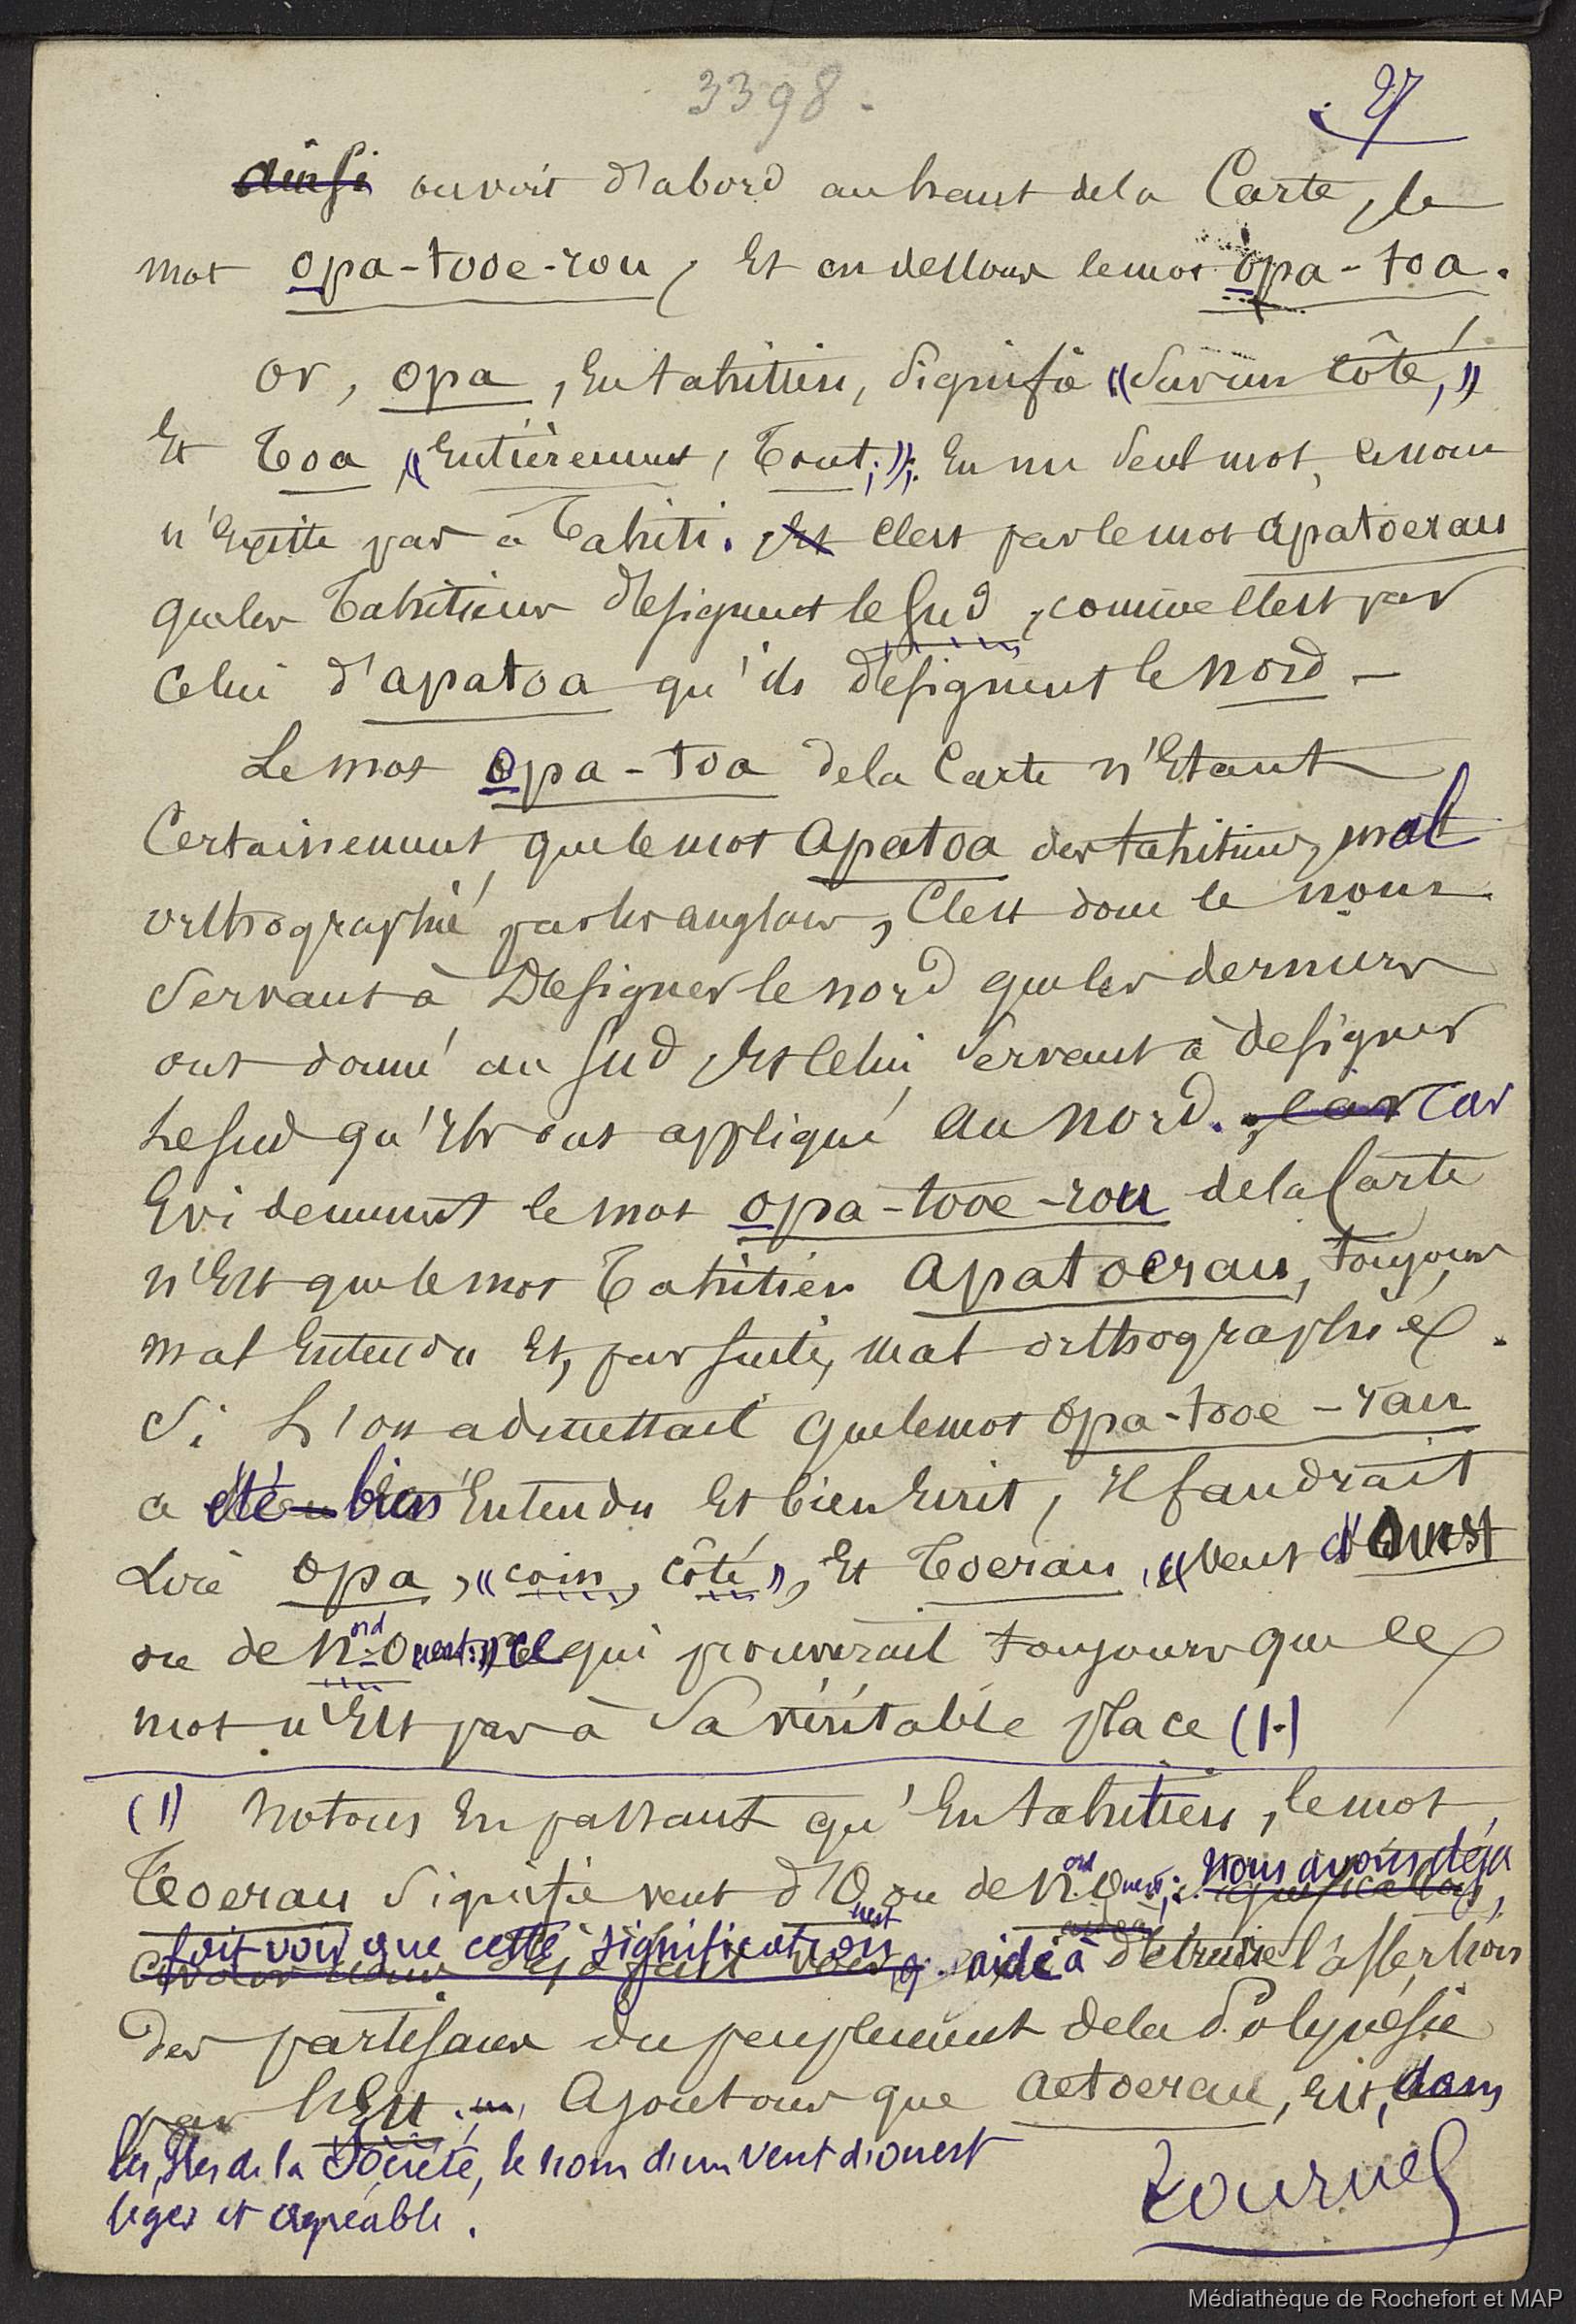 3398.
27
ainsi on voit d'abord au haut de la Carte, le
mot opa-tooe-rou, Et en dessous le mot opa-toa.
Or, opa, En tahitien, signifie « Sur un Côté, »
Et Toa, « Entièrement, Tout; »; En un seul mot, ce nom
n'Existe pas à Tahiti. Et C'est par le mot apatoerau
que les Tahitiens désignent le Sud, comme c'est par
Celui d'apatoa qu'ils désignent le nord —
Le mot opa-toa de la Carte n'Étant
Certainement que le mot Apatoa des tahitiens, mal
orthographié par les anglais, C'est donc le nom
Servant à Désigner le nord que les derniers
ont donné au Sud Et Celui Servant à désigner
le Sud qu'ils ont appliqué au nord. , car Car
Evidemment le mot opa-tooe-rou de la Carte
n'Est que le mot Tahitien Apatoerau, toujours
mal Entendu Et, par suite, mal orthographié.
Si L'on admettait que le mot opa-tooe-rau
a été bien Entendu Et bien Écrit, Il faudrait
Lire opa, « coin, côté », Et Toerau, « Vent d'Ouest
ou de nord-Ouest: » ce qui prouverait toujours que le
mot n'Est pas à Sa véritable place (1.)
(1) Notons En passant qu'En tahitien, le mot
Toerau Signifie vent d'Ouest ou de Nord Ouest; Nous avons déjà
fait voir que cette signification aide à détruire l'assertion
Des partisans du peuplement de la Polynésie
par l'Est. Ajoutons que aetoerau, Est, dans
les Iles de la Société, le nom d'un vent d'ouest
léger et agréable.
Tournez
Médiathèque de Rochefort et MAP